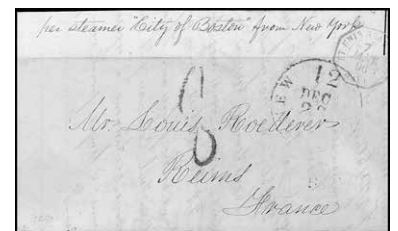 per steamer "City of Boston" from New York
NEW 12
DEC
8
Mr. Louis Roederer
Reims
France